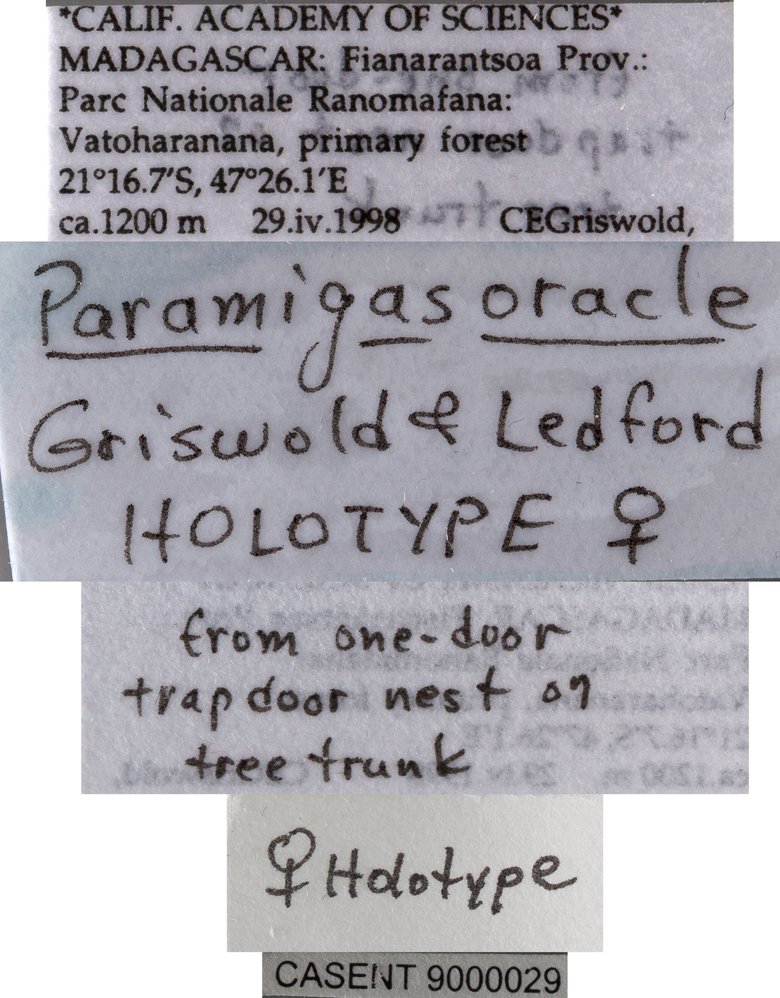 *CALIF. ACADEMY OF SCIENCES*
MADAGASCAR: Fianarantsoa Prov.:
Parc Nationale Ranomafana:
Vatoharanana, primary forest
21°16.7'S, 47°26.1'E
ca.1200 m 29.iv.1998 CEGriswold,
Paramigas oracle
Griswold & Ledford
HOLOTYPE ♀
from one-door
trapdoor nest on
tree trunk
♀ Holotype
CASENT 9000029